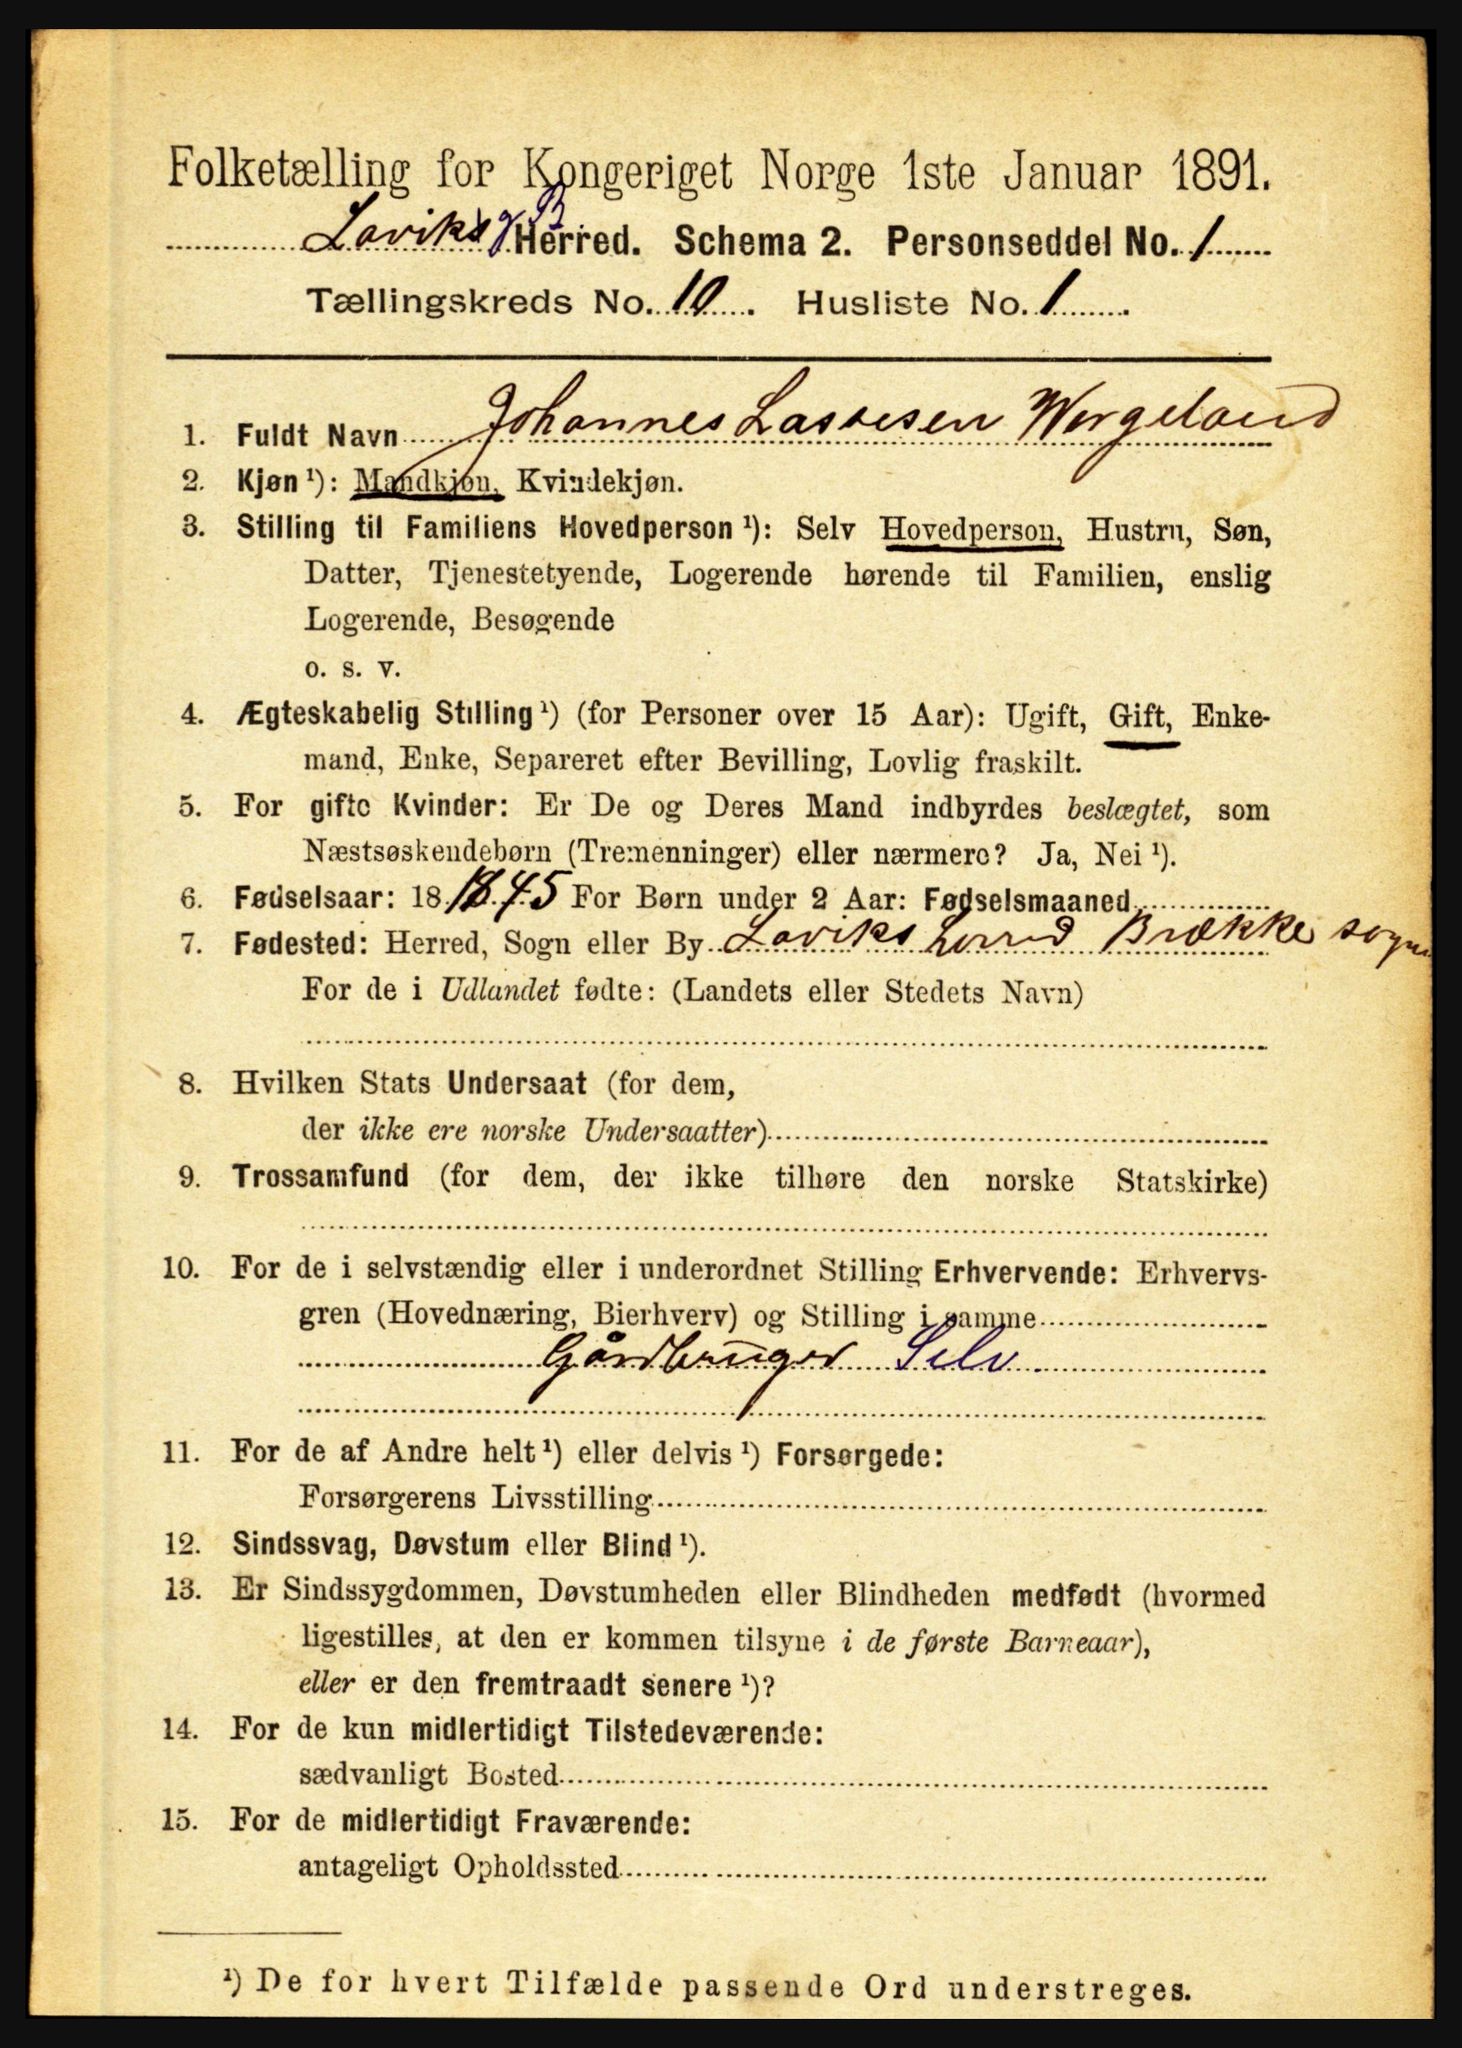 Folketælling for Kongeriget Norge 1ste Januar 1891.
Laviks og B Herred. Schema 2. Personseddel No. 1
Tællingskreds No. 10. Husliste No. 1.
1. Fuldt Navn Johannes Lassesen Wergeland
2. Kjøn ¹): Mandkjøn, Kvindekjøn.
3. Stilling til Familiens Hovedperson ¹): Selv Hovedperson, Hustru, Søn,
Datter, Tjenestetyende, Logerende hørende til Familien, enslig
Logerende, Besøgende
o. s. v.
4. Ægteskabelig Stilling ¹) (for Personer over 15 Aar): Ugift, Gift, Enke-
mand, Enke, Separeret efter Bevilling, Lovlig fraskilt.
5. For gifte Kvinder: Er De og Deres Mand indbyrdes beslægtet, som
Næstsøskendebørn (Tremenninger) eller nærmere? Ja, Nei ¹).
6. Fødselsaar: 18 1845 For Børn under 2 Aar: Fødselsmaaned
7. Fødested: Herred, Sogn eller By Laviks herred Brække sogn
For de i Udlandet fødte: (Landets eller Stedets Navn)
8. Hvilken Stats Undersaat (for dem,
der ikke ere norske Undersaatter)
9. Trossamfund (for dem, der ikke tilhøre den norske Statskirke)
10. For de i selvstændig eller i underordnet Stilling Erhvervende: Erhvervs-
gren (Hovednæring, Bierhverv) og Stilling i samme
Gårdbruger Selv.
11. For de af Andre helt ¹) eller delvis ¹) Forsørgede:
Forsørgerens Livsstilling
12. Sindssvag, Døvstum eller Blind ¹).
13. Er Sindssygdommen, Døvstumheden eller Blindheden medfødt (hvormed
ligestilles, at den er kommen tilsyne i de første Barneaar),
eller er den fremtraadt senere ¹)?
14. For de kun midlertidigt Tilstedeværende:
sædvanligt Bosted
15. For de midlertidigt Fraværende:
antageligt Opholdssted
¹) De for hvert Tilfælde passende Ord understreges.